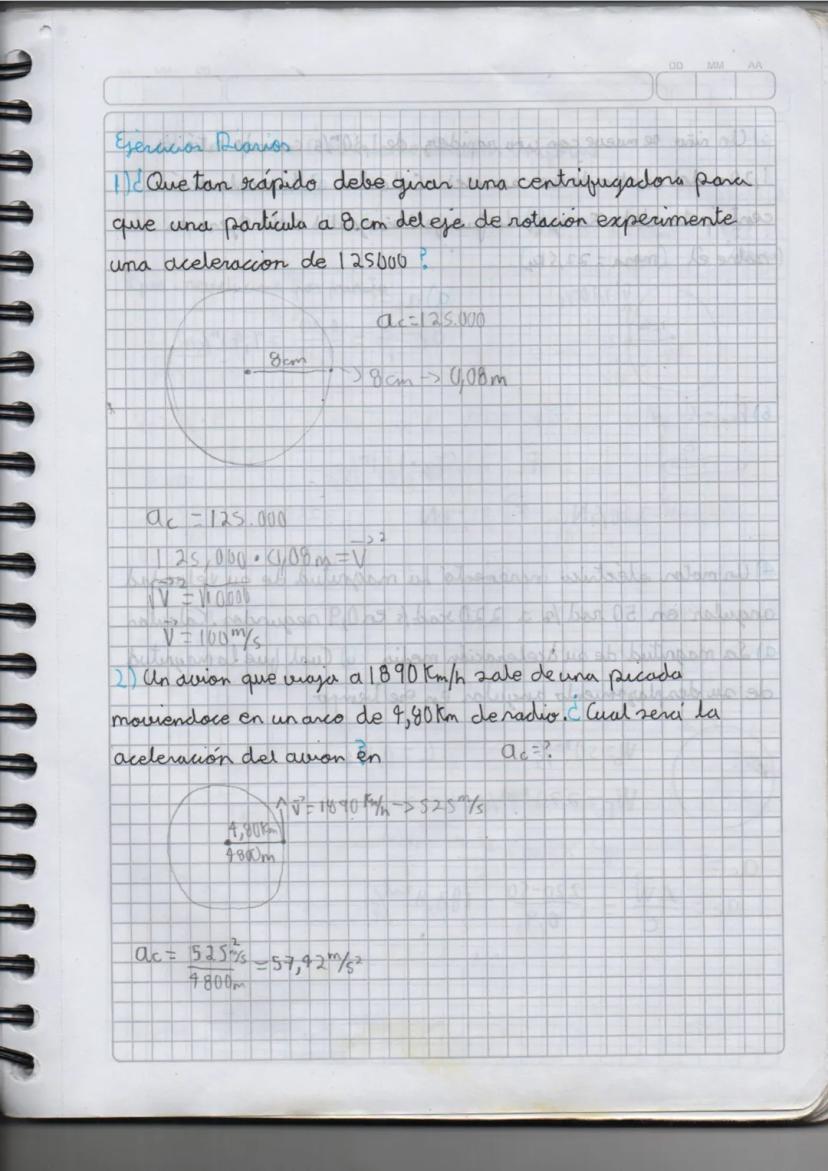 DD MM AA
Ejercicios Diarios
1) ¿Que tan rápido debe girar una centrifugadora para
que una partícula a 8 cm del eje de rotación experimente
una aceleración de 125000 ?
ac=125.000
8cm
8cm -> 0,08m
ac = 125.000
125,000 • 0,08m = V²
√V² = √10000
V = 100 m/s
2) Un avion que viaja a 1890 Km/h sale de una picada
moviendoce en un arco de 4,80 Km de radio. ¿Cual será la
aceleración del avion ? en
ac=?
V = 1890 Km/h -> 525 m/s
4,80Km
4800m
ac = 525² m/s / 4800m = 57,42 m/s²